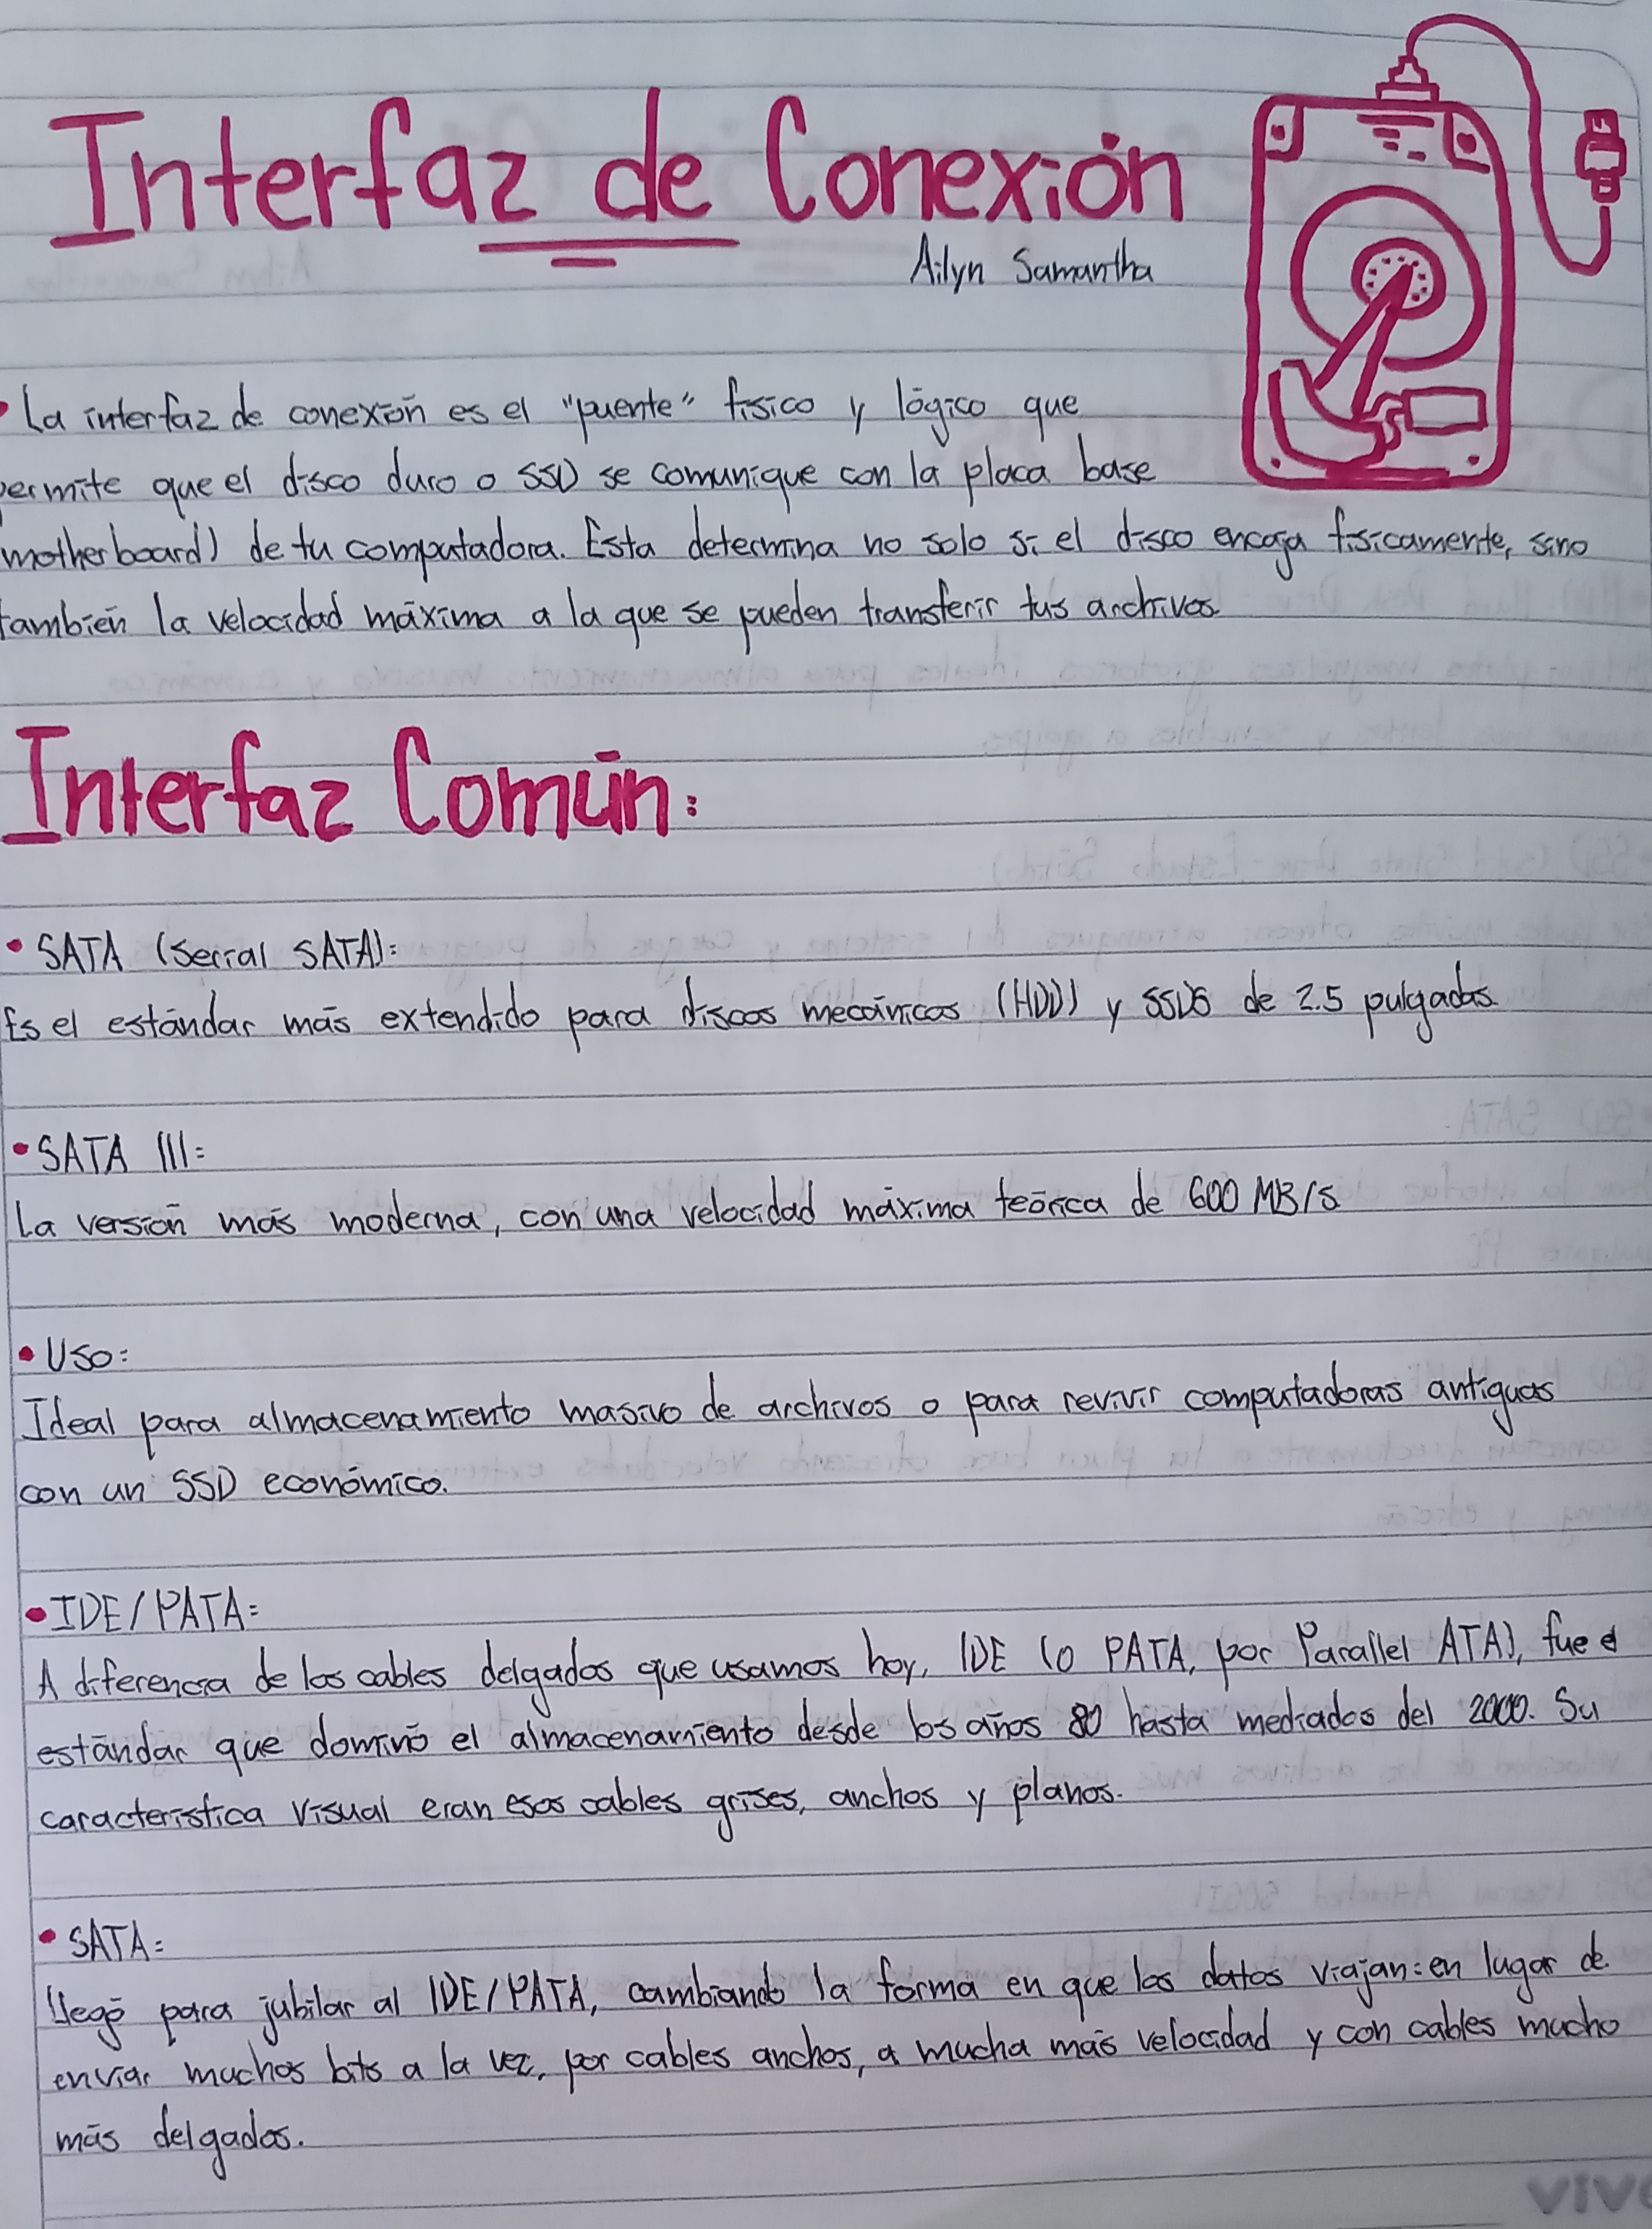 Interfaz de Conexión
Ailyn Samantha
• La interfaz de conexión es el "puente" físico y lógico que
permite que el disco duro o SSD se comunique con la placa base
motherboard) de tu computadora. Esta determina no solo si el disco encaja físicamente, sino
también la velocidad máxima a la que se pueden transferir tus archivos
Interfaz Común:
• SATA (Serial SATA):
Es el estándar más extendido para discos mecánicos (HDD) y SSDS de 2.5 pulgadas
• SATA III:
La versión más moderna, con una velocidad máxima teórica de 600 MB/s
• Uso:
Ideal para almacenamiento masivo de archivos o para revivir computadoras antiguas
con un SSD económico.
• IDE/PATA:
A diferencia de los cables delgados que usamos hoy, IDE (o PATA, por Parallel ATA), fue el
estándar que dominó el almacenamiento desde los años 80 hasta mediados del 2000. Su
característica visual eran esos cables grises, anchos y planos.
• SATA:
llegó para jubilar al IDE/PATA, cambiando la forma en que los datos viajan: en lugar de
enviar muchos bits a la vez, por cables anchos, a mucha más velocidad y con cables mucho
más delgados.